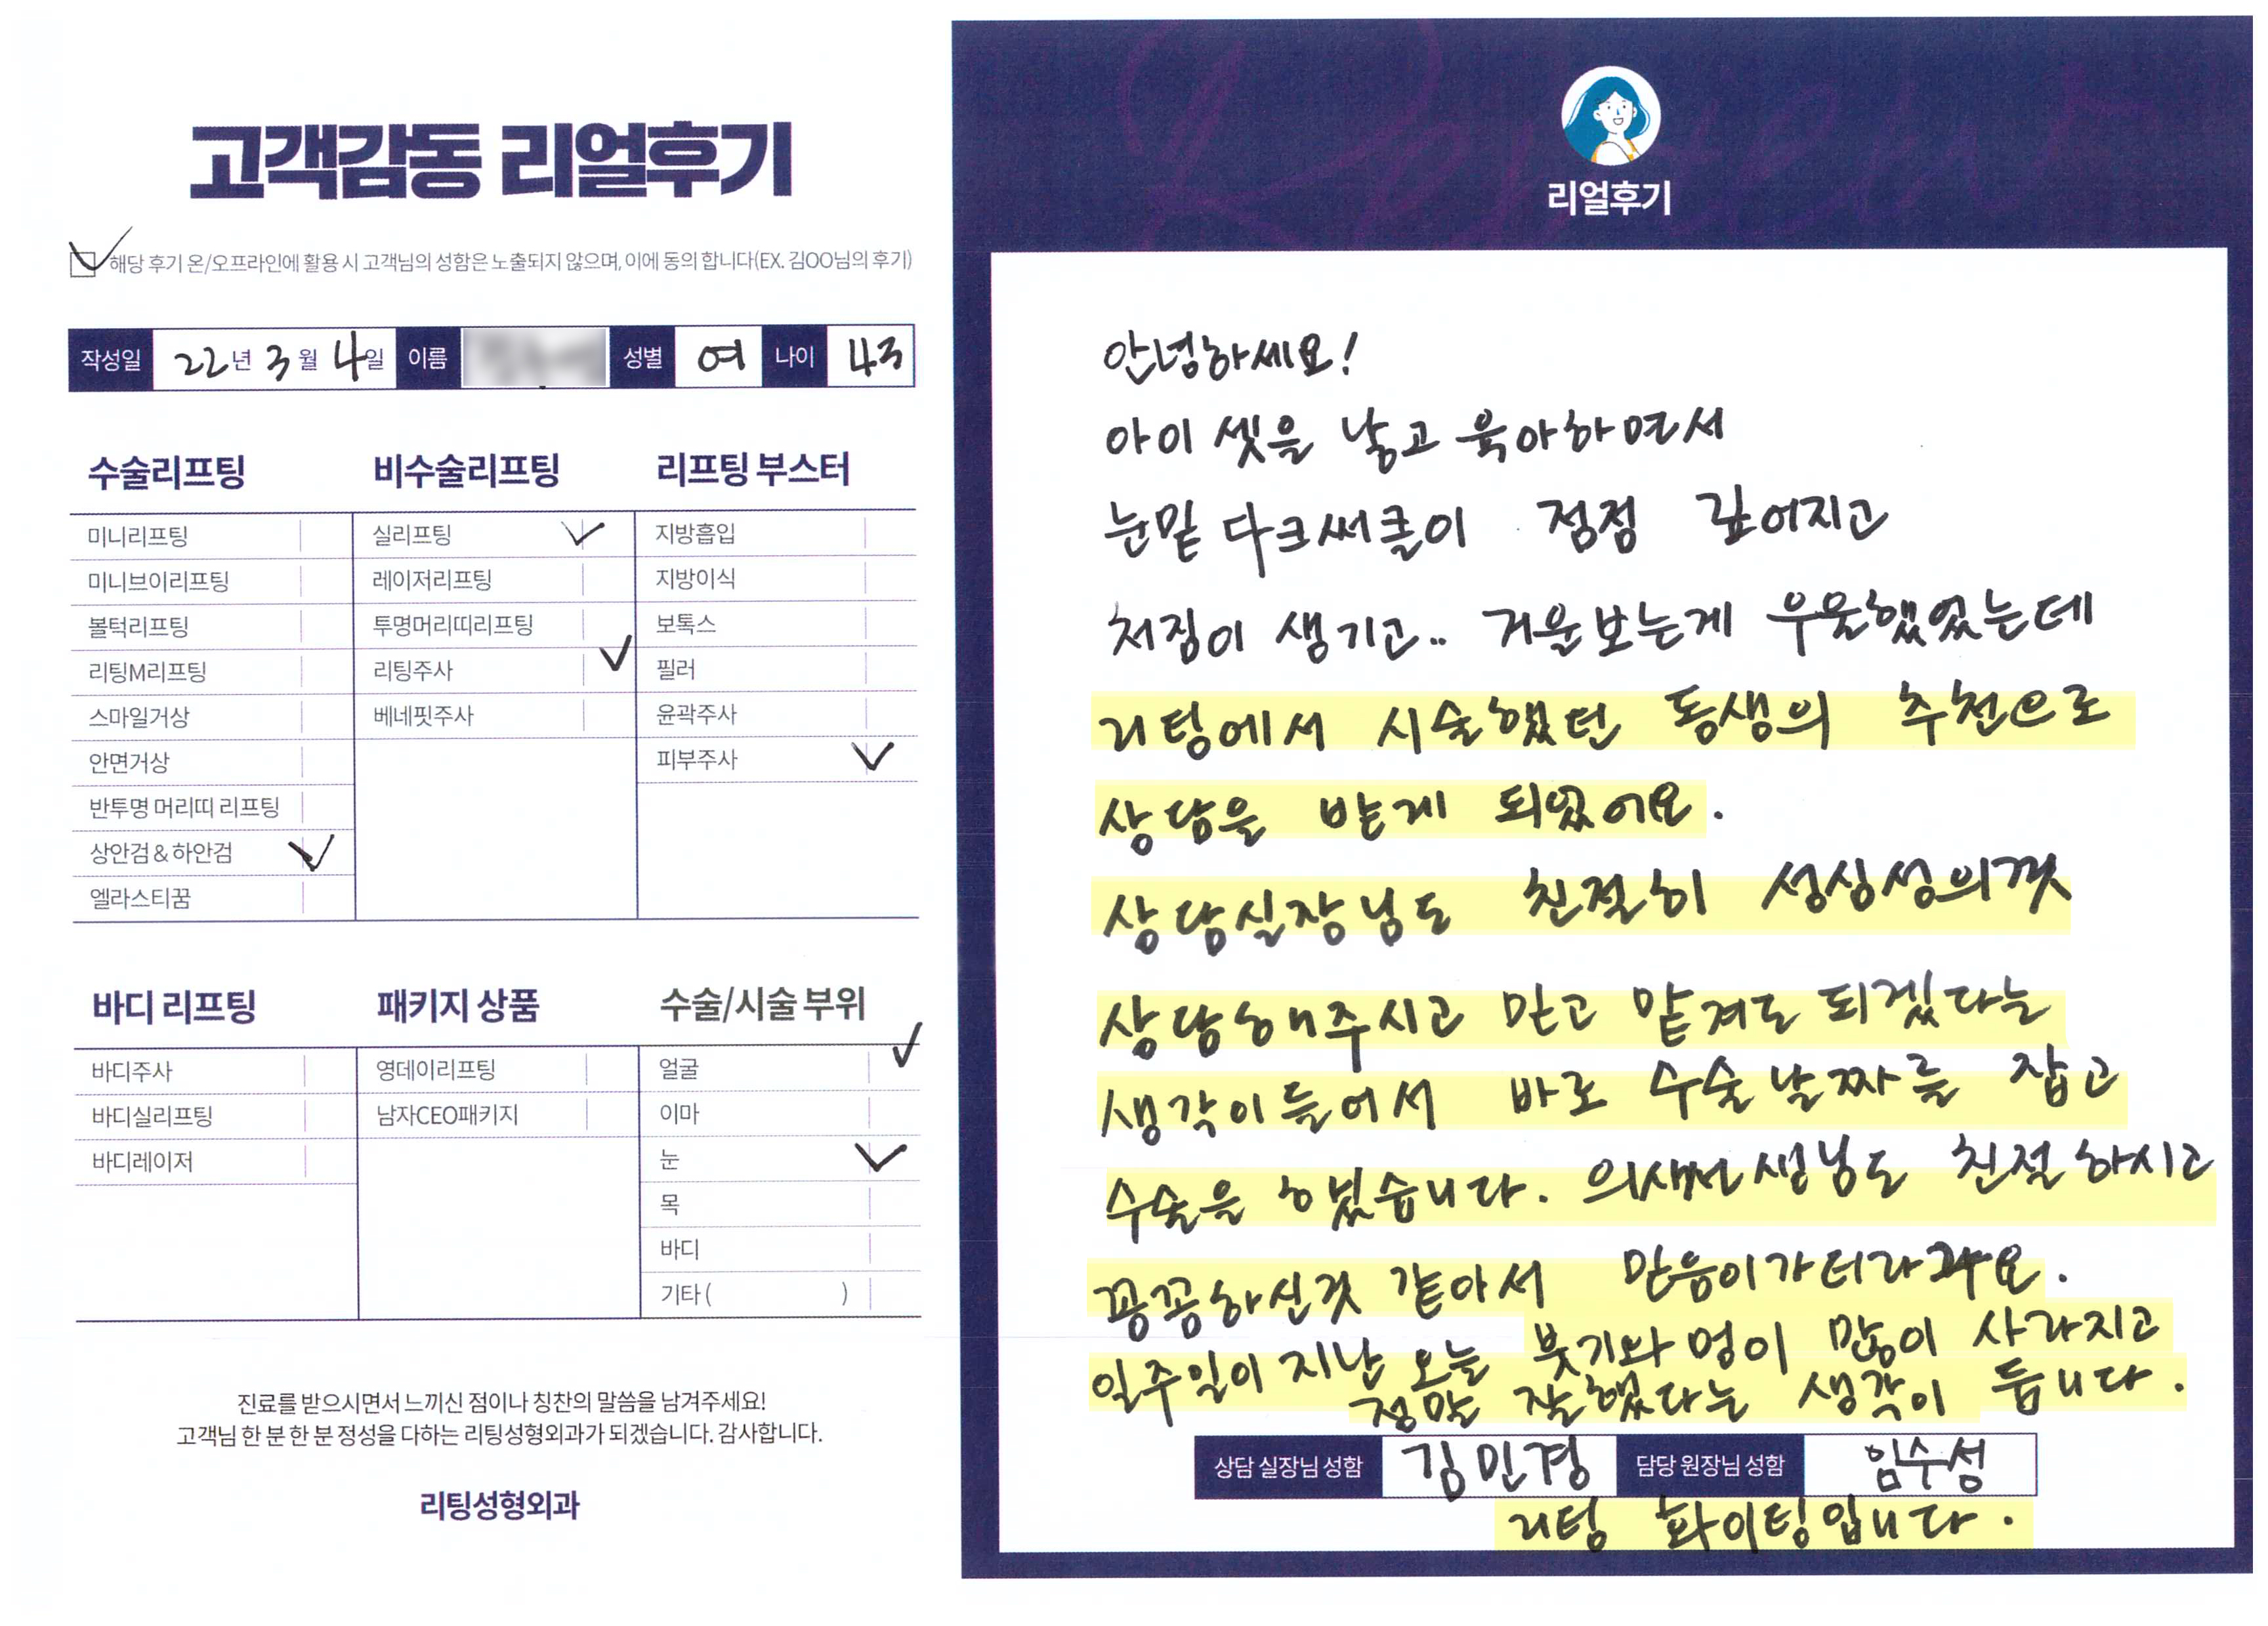 고객감동 리얼후기
해당 후기 온/오프라인에 활용 시 고객님의 성함은 노출되지 않으며, 이에 동의 합니다(EX. 김OO님의 후기)
작성일 22년 3월 4일 이름 성별 여 나이 43
수술리프팅
미니리프팅
미니브이리프팅
볼턱리프팅
리팅M리프팅
스마일거상
안면거상
반투명 머리띠 리프팅
상안검 & 하안검
엘라스티꿈
비수술리프팅
실리프팅
레이저리프팅
투명머리띠리프팅
리팅주사
베네핏주사
리프팅 부스터
지방흡입
지방이식
보톡스
필러
윤곽주사
피부주사
바디 리프팅
바디주사
바디실리프팅
바디레이저
패키지 상품
영데이리프팅
남자CEO패키지
수술/시술 부위
얼굴
이마
눈
목
바디
기타 ( )
진료를 받으시면서 느끼신 점이나 칭찬의 말씀을 남겨주세요!
고객님 한 분 한 분 정성을 다하는 리팅성형외과가 되겠습니다. 감사합니다.
리팅성형외과
리얼후기
안녕하세요!
아이 셋을 낳고 육아하면서
눈밑 다크써클이 점점 깊어지고
처짐이 생기고.. 거울보는게 우울했었는데
리팅에서 시술했던 동생의 추천으로
상담을 받게 되었어요.
상담실장님도 친절히 성심성의껏
상담해주시고 믿고 맡겨도 되겠다는
생각이들어서 바로 수술날짜를 잡고
수술을 했습니다. 의사선생님도 친절하시고
꼼꼼하신것 같아서 믿음이가더라구요.
일주일이 지난 오늘 붓기와 멍이 많이 사라지고
정말 잘했다는 생각이 듭니다.
상담 실장님 성함 김민경 담당 원장님 성함 임수성
리팅 화이팅입니다.